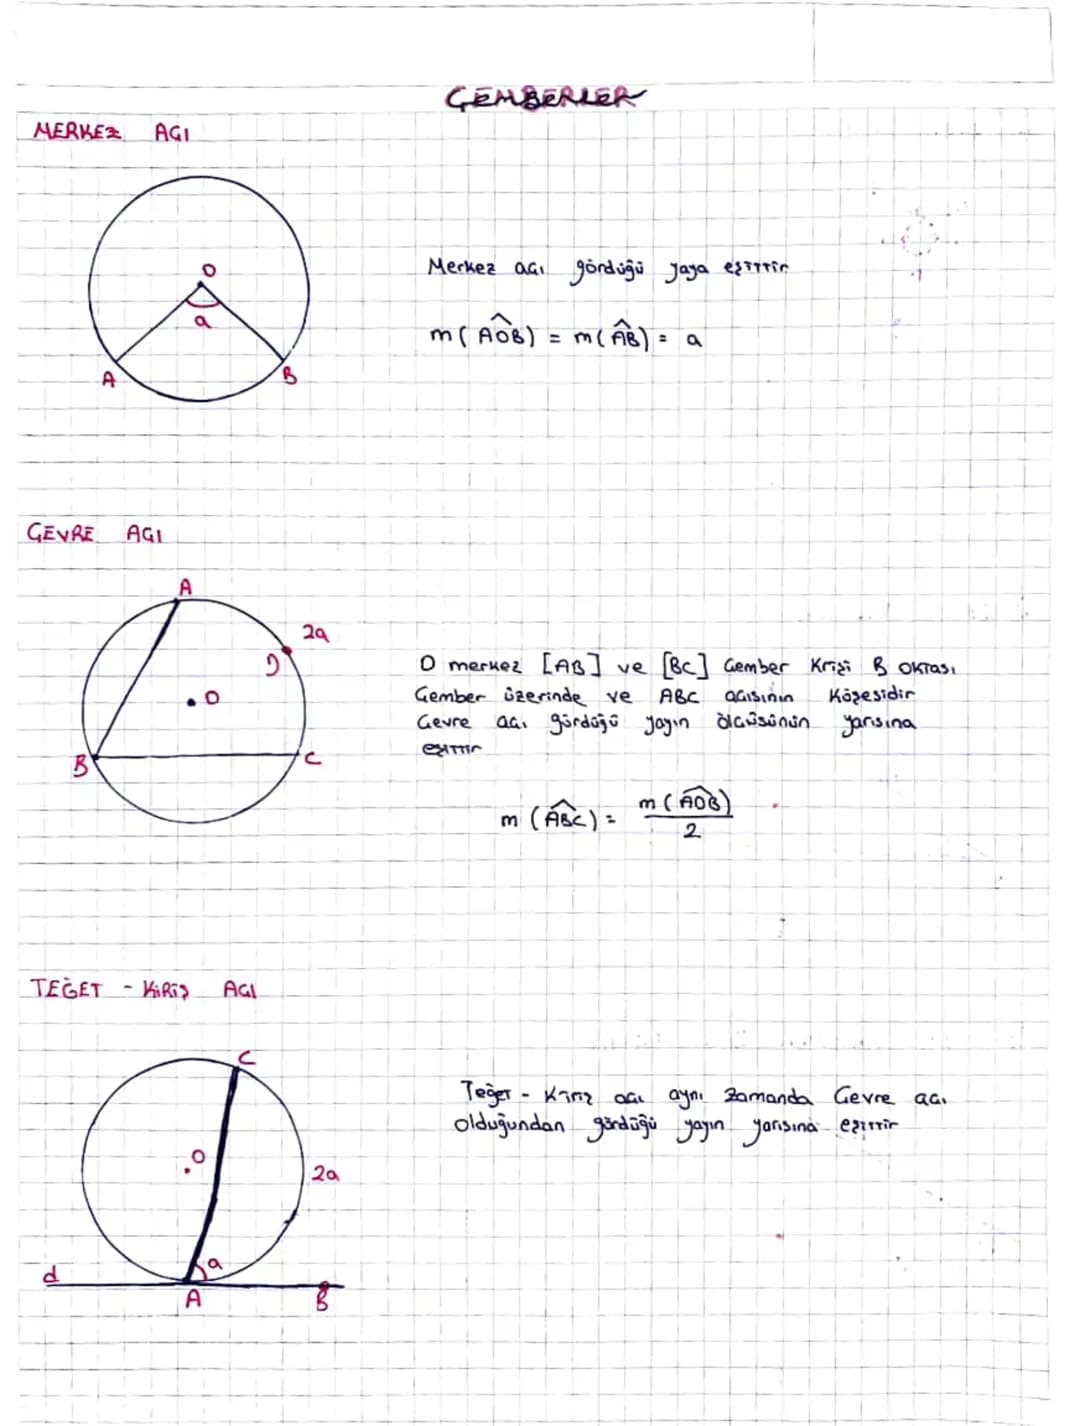 ÇEMBERLER
MERKEZ AÇI
O
a
A
B
Merkez açı gördüğü yaya eşittir
m(AOB) = m(AB) = a
ÇEVRE AÇI
A
2a
D
O
B
C
O merkez [AB] ve [BC] Çember Krişi B oktası
Çember üzerinde ve ABC açısının Köşesidir
Çevre açı gördüğü yayın ölçüsünün yarısına
eşittir
m(ABC) = m(AOB)
2
TEĞET - KİRİŞ AÇI
C
O
2a
a
d
A
B
Teğet - Kiriş açı aynı zamanda Çevre açı
olduğundan gördüğü yayın yarısına eşittir